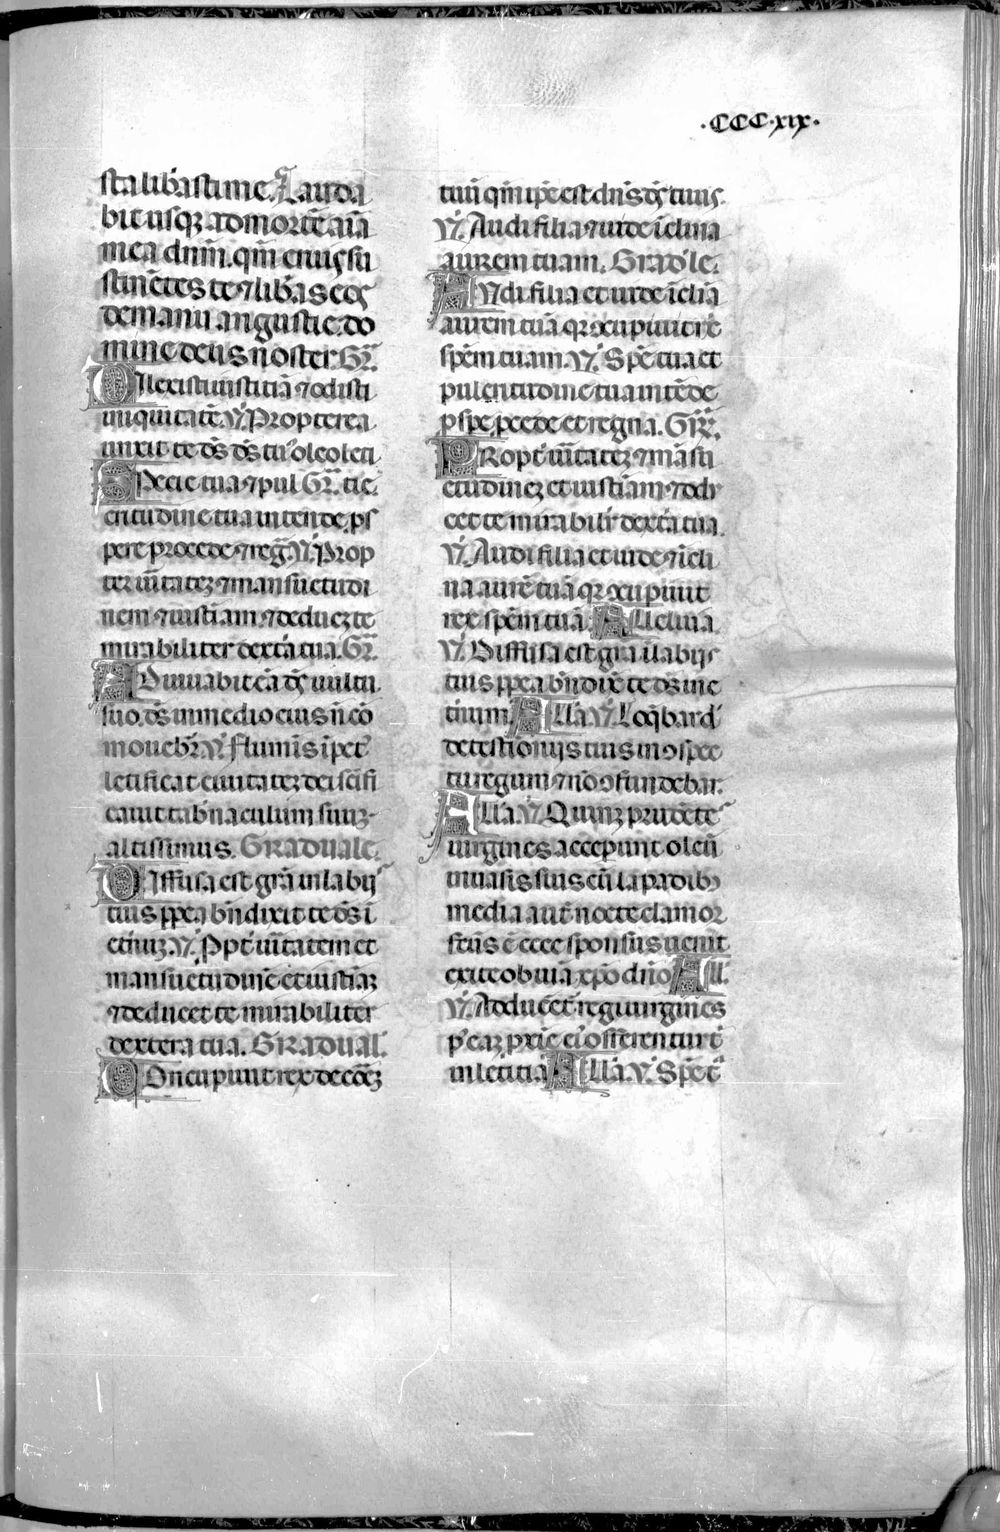 .CCC.xix.
sta libasti me. Lauda
bit usq; ad mortē aīa
mea dnm̄. qm̄ eruis su
stinētes te ⁊ libas eos
de manu angustie. do
mine deus noster. Gr̄.
Dilexisti iustitiā ⁊ odisti
iniquitatē. ℣. Propterea
unxit te ds̄ ds̄ tuꝰ oleo leti
Specie tua ⁊ pul Gr̄. tie.
critudine tua intende. ps
pere procede ⁊ reḡ. ℣. Prop
ter ūitatez ⁊ mansuetudi
nem ⁊ iustiam. ⁊ deducz te
mirabiliter dextā tua. Gr̄.
Adiuuabit eā ds̄ uultu
suo. ds̄ in medio eius n̄ cō
mouebr̄. ℣. Flumīs īpetꝰ
letificat ciuitatez dei scifi
cauit tabnaculum suuz
altissimus. Graduale.
Diffusa est grā in labijs
tuis ppea bn̄dixit te ds̄ ī
etnuz. ℣. Ppt ūitatem et
mansuetudinē et iustiaz
⁊ deducet te mirabiliter
dextera tua. Gradual.
Concupiuit rex decorez
tuū qm̄ ipe est dn̄s ds̄ tuus.
℣. Audi filia ⁊ uide īclina
aurem tuam. Gradꝰle.
Audi filia et uide īclīa
aurem tuā qr ɔcupiuit rē
spēm tuam. ℣. Spē tua et
pulcritudine tua intēde
pspe pcede et regna. Gr̄.
Propt ūitatez ⁊ māsu
etudinez et iustiam ⁊ dedu
cet te mirabilr dextā tua.
℣. Audi filia et uide ⁊ īcli
na aurē tuā qr ɔcupiuit
rex spēm tuā. Alleluia.
℣. Diffusa est grā ī labijs
tuis ppea bn̄dix te ds̄ in e
ternum. Alla. ℣. Loqbard
de testionijs tuis in ɔspec
tu regum ⁊ nō ɔfundebar.
Alla. ℣. Quinz prudētes
uirgines accepunt oleū
in uasis suis cū lāpadibꝰ
media aut nocte clamor
fctus ē ecce sponsus uenit
exite obuiā xpo dn̄o. All.
℣. Adducet regi uirgines
pꝰ eaz pxie eiꝰ offerentur t
in letitia. Alla. ℣. Spē t